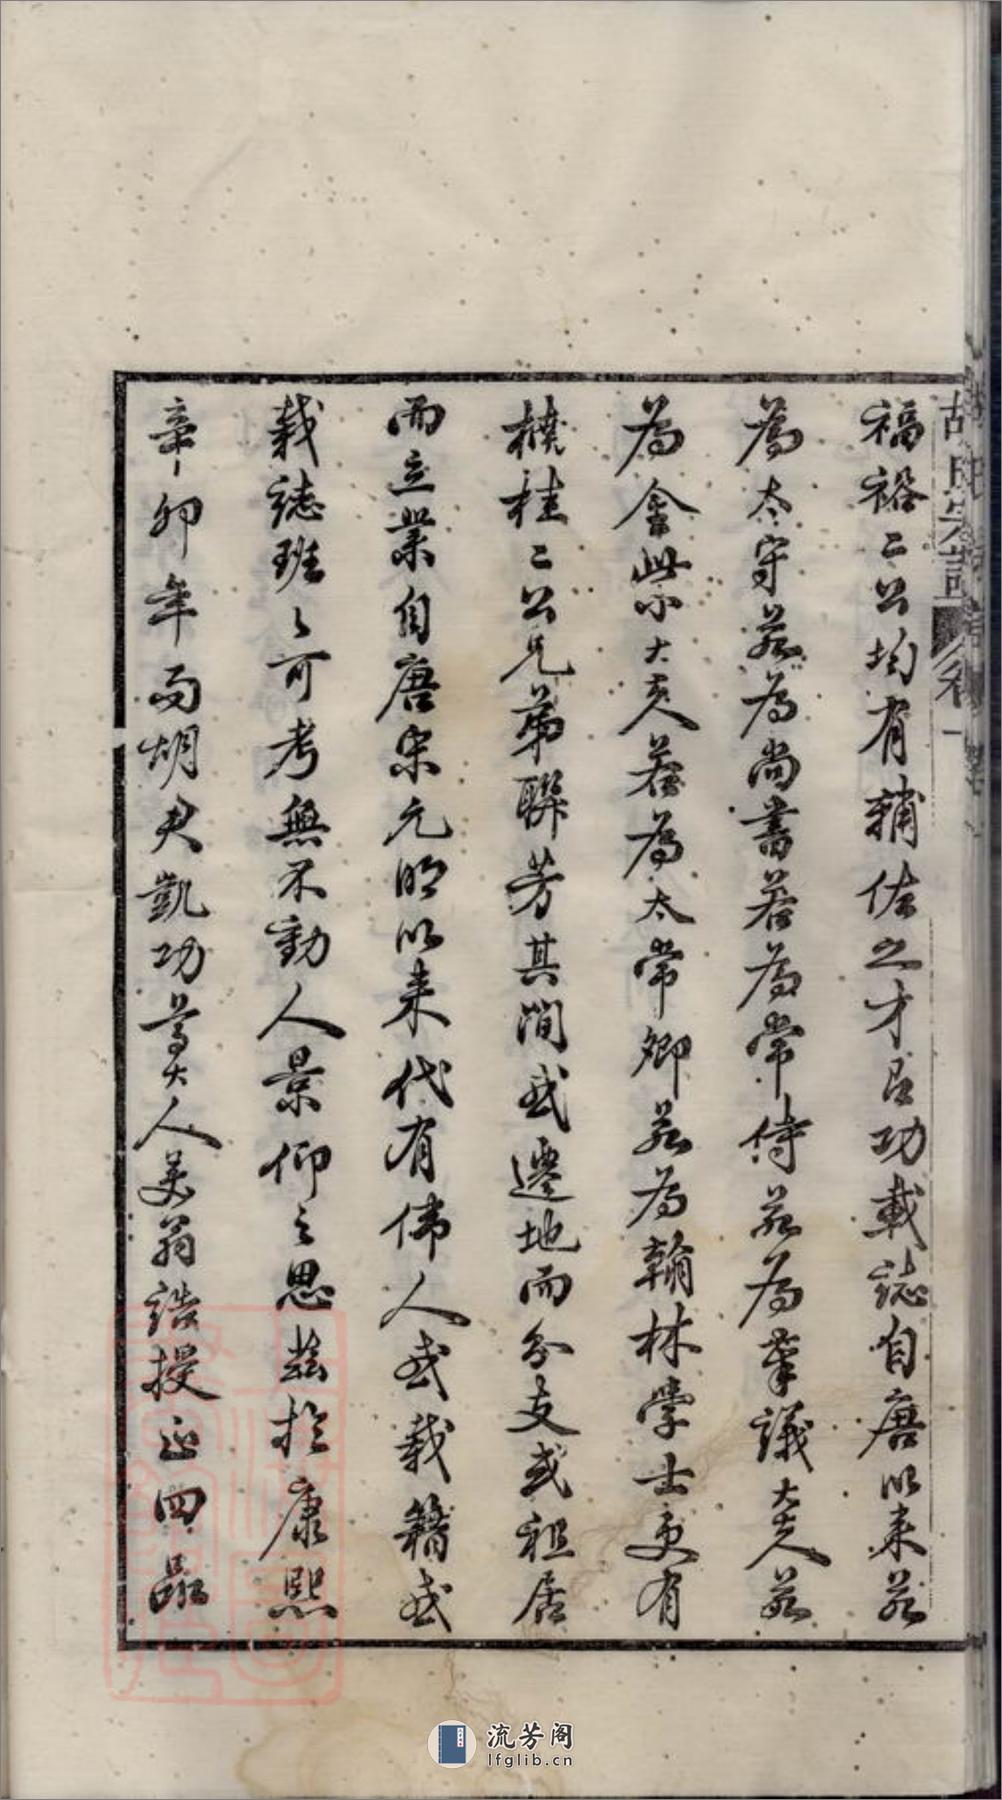 胡氏宗譜 卷一
福裕二公均有輔佐之才日功載誌自唐以來若
為太守若為尚書若為常侍若為奉議大夫若
為金紫大夫若為太常卿若為翰林學士更有
樸桂二公兄弟聯芳其間或遷地而分支或祖居
而立業自唐宋元明以来代有偉人或載籍或
載誌班〻可考無不動人景仰之思茲於康熙
辛卯年而胡君凱功尊大人美翁誥授正四品
流芳阁
lfglib.cn